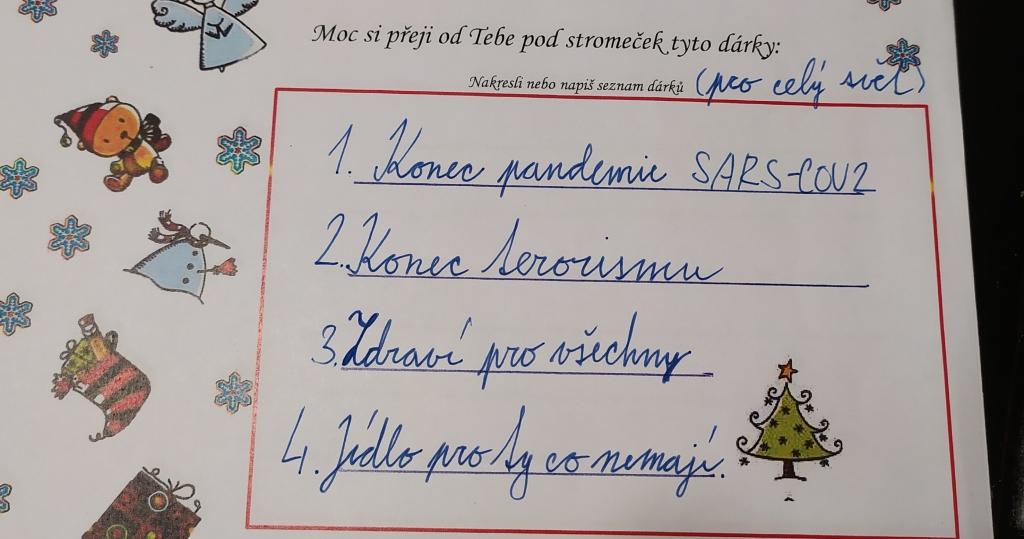 Moc si přeji od Tebe pod stromeček tyto dárky:
Nakresli nebo napiš seznam dárků (pro celý svět)
1. Konec pandemie SARS-COV2
2. Konec terorismu
3. Zdraví pro všechny
4. Jídlo pro ty co nemají.